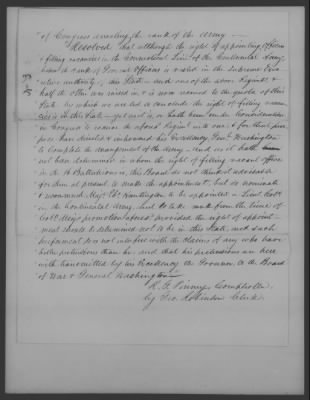 of Congress arresting the rank of the Army —
Resolved that although the right of appointing Officers
& filling vacancies in the Connecticut Line of the Continental Army,
below the rank of General Officers is vested in the Supreme Exec
utive authority of this State — and one of the above Regimts &
half the other was raised in & is now annexed to the quota of this
State. By which we are led to conclude the right of filling vacan
cies is in this State — yet as it is, or hath been under Consideration
in Congress to annex the afores'd Regimt with and & for that pur
pose have directed & impowered his Excellency Genl Washington
to complete the arrangement of the Army — and as it hath
not been determined in whom the right of filling vacant offices
in the Battalion is, this Board do not think it adviseable
for them at present to make the appointment, but do nominate
& recommend Majr Huntington to be appointed a Lieut Colo
in the Continental Army, and to take rank from the time of
Colo Meigs promotion aforesd provided the right of appoint
ment should be determined not to be in this State, and such
preferment does not interfere with the Claims of any who have
better pretentions than he, and that his pretentions are here
with transmitted by his Excellency the Governor to the Board
of War & General Washington"
Comptroller
by Geo. Robinson Clerk.